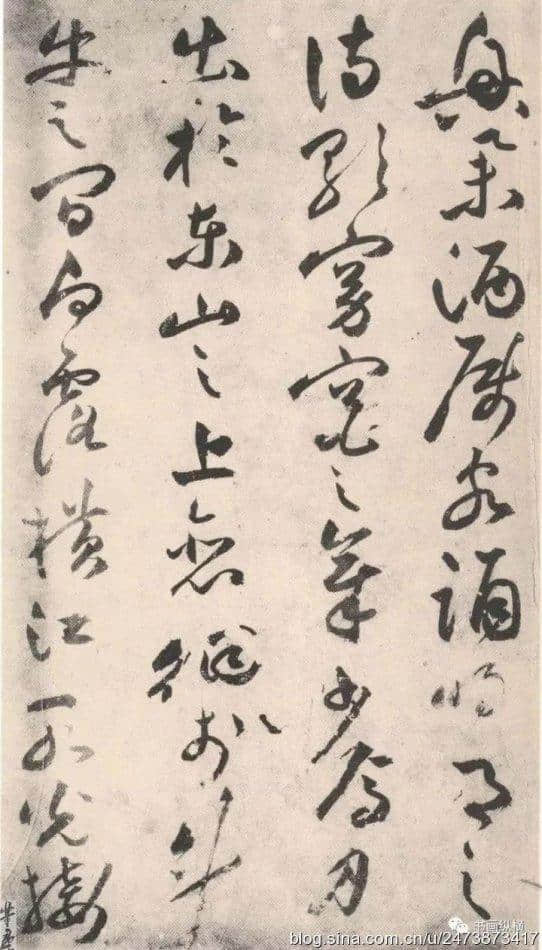 舉酒屬客誦明月之
詩歌窈窕之章少焉月
出於東山之上徘徊於斗
牛之間白露橫江水光接
书画纵横
blog.sina.com.cn/u/2473873417